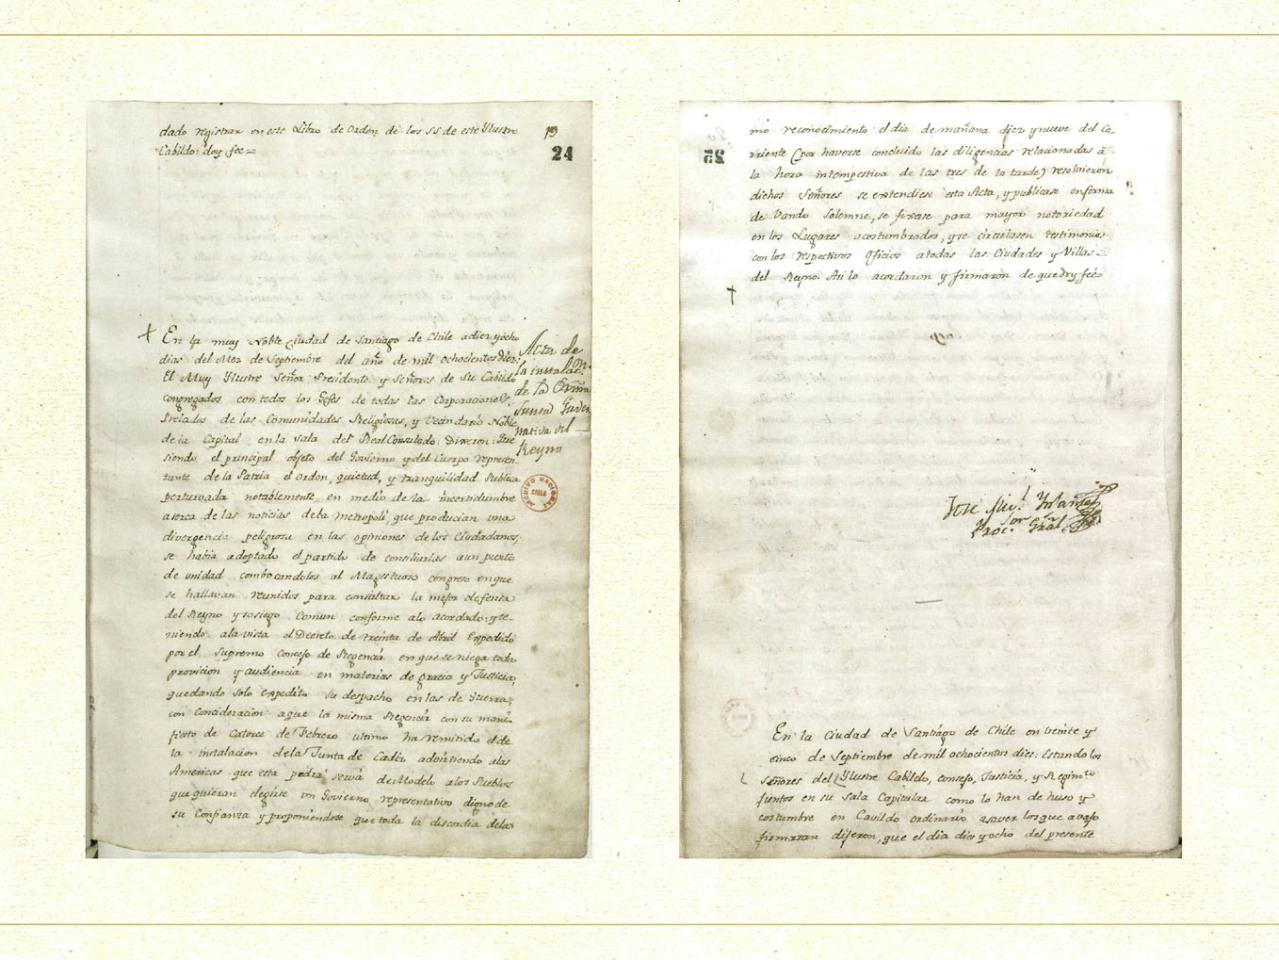 dado registrar en este Libro de Orden de los SS de este Ylustre
Cabildo: doy fee =
19
24
En la muy Noble Ciudad de Santiago de Chile a diez y ocho
dias del Mez de Septiembre del año de mil ochocientos diez:
El Muy Ylustre Señor Presidente y Señores de su Cabildo
congregados con todos los Gefes de todas las Corporaciones,
Prelados de las Comunidades Religiosas, y Vecindario Noble
de la Capital en la sala del Real Consulado: Dixeron: que
siendo el principal objeto del Govierno y del Cuerpo represen-
tante de la Patria el orden, quietud, y tranquilidad Publica
perturvada notablemente en medio de la incertidumbre
acerca de las noticias de la metropoli, que producian una
divergencia peligrosa en las opiniones de los Ciudadanos,
se havia adoptado el partido de conciliarlas a un punto
de unidad combocandolos al Magestuoso congreso en que
se hallavan reunidos para consultar la mejor defensa
del Reyno y sosiego comun conforme a lo acordado: y te-
niendo a la vista el Decreto de treinta de Abril Expedido
por el Supremo Consejo de Regencia en que se niega toda
provicion y audiencia en materias de Gracia y Justicia,
quedando solo expedito su despacho en las de Guerra;
con concideracion a que la misma Regencia con su mani-
fiesto de Catorce de Febrero ultimo ha remitido el de
la instalacion de la Junta de Cadiz advirtiendo a las
Americas que esta podrá servir de Modelo a los Pueblos
que quieran elegirse un Govierno representativo digno de
su Confianza y proponiendose que toda la discordia de la
Acta de
la instalac.on
de la Exma
Junta Guber
nativa del
Reyno
ARCHIVO NACIONAL
CHILE
25
mo reconocimiento el dia de mañana diez y nueve del Co-
rriente (por haverse concluido las diligencias relacionadas á
la hora intempestiva de las tres de la tarde) resolvieron
dichos Señores se extendiese esta Acta, y publicase en forma
de Vando Solemne, se fixase para mayor notoriedad
en los Lugares acostumbrados, y se circulasen testimonios
con los respectivos Oficios a todas las Ciudades y Villas
del Reyno. Asi lo acordaron y firmaron de que doy feé
José Mig.l Ynfante
Proc.or Gral
En la Ciudad de Santiago de Chile en veinte y
cinco de Septiembre de mil ochocientos diez: Estando los
Señores del Ylustre Cabildo, consejo, Justicia, y Regimto
juntos en su sala Capitular como lo han de huso y
costumbre en Cavildo ordinario asaver los que avajo
firmaran dijeron, que el dia diez y ocho del presente